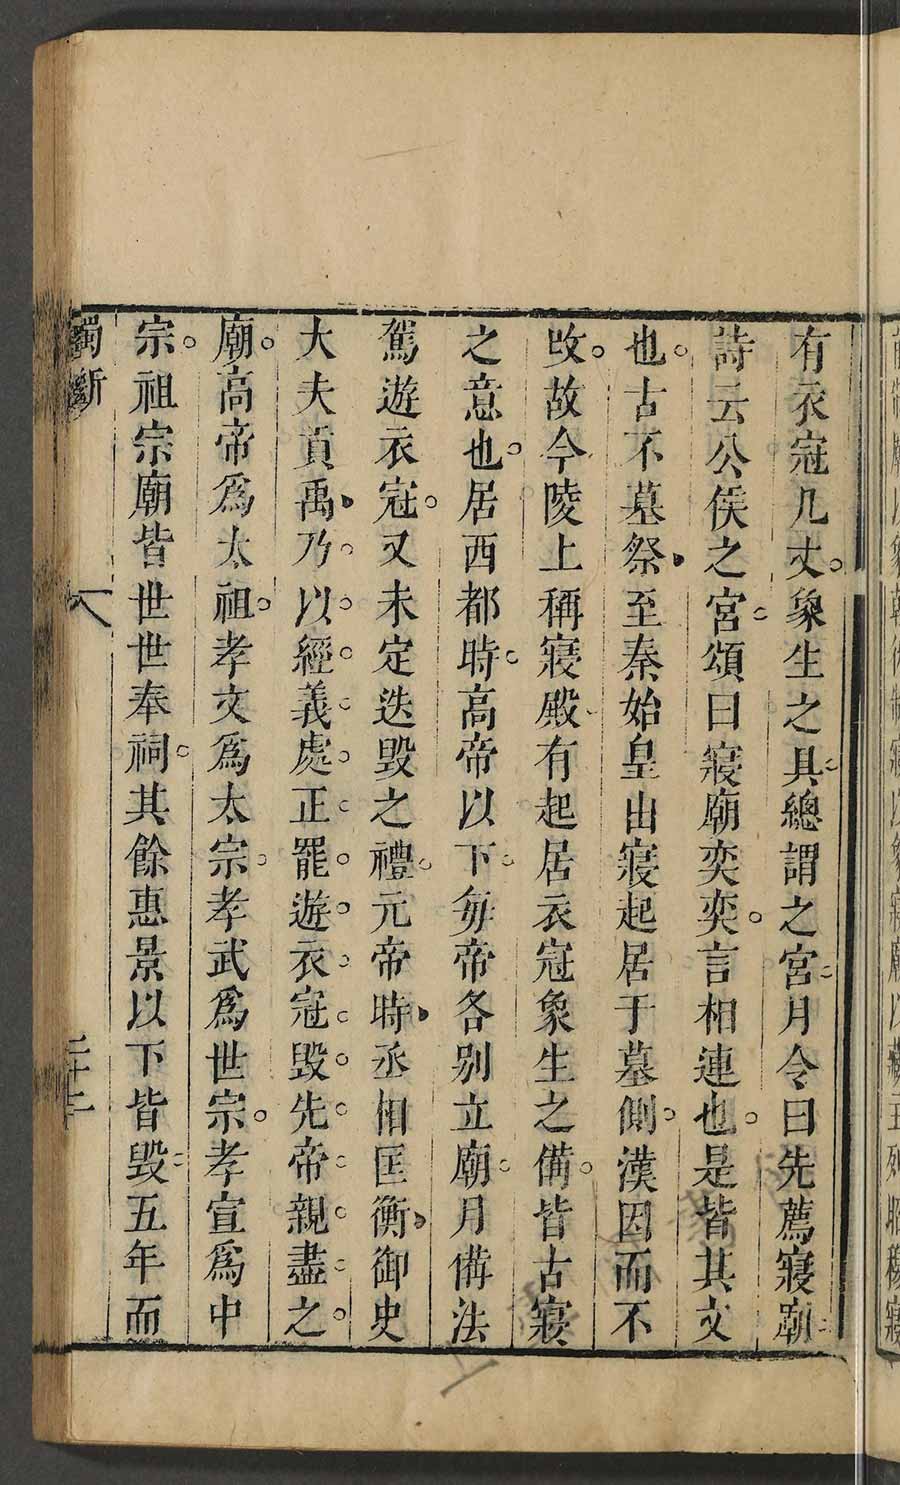 有衣冠几丈象生之具總謂之宮月令曰先薦寢廟
詩云公侯之宮頌曰寢廟奕奕言相連也是皆其文
也古不墓祭至秦始皇出寢起居于墓側漢因而不
改故今陵上稱寢殿有起居衣冠象生之備皆古寢
之意也居西都時高帝以下每帝各别立廟月備法
駕遊衣冠又未定迭毀之禮元帝時丞相匡衡御史
大夫貢禹乃以經義處正罷遊衣冠毀先帝親盡之
廟高帝爲太祖孝文爲太宗孝武爲世宗孝宣爲中
宗祖宗廟皆世世奉祠其餘惠景以下皆毀五年而
獨斷
二十二